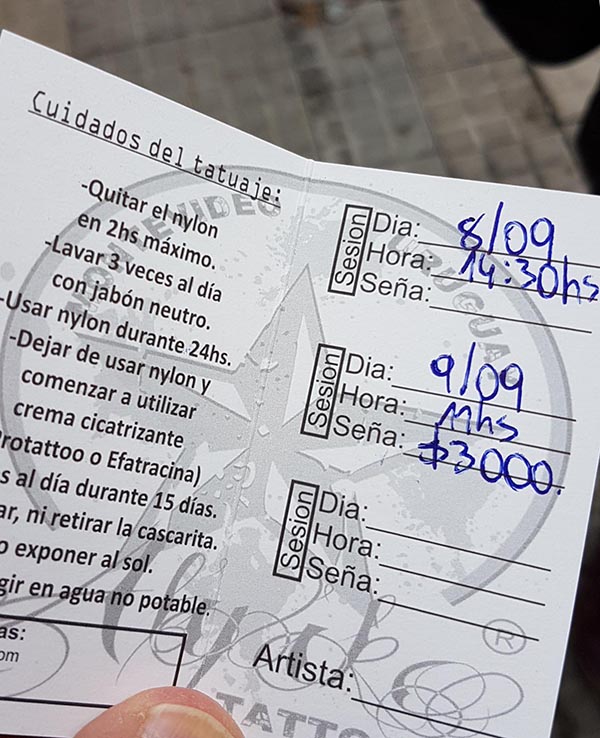 Cuidados del tatuaje:
-Quitar el nylon
en 2hs máximo.
-Lavar 3 veces al día
con jabón neutro.
-Usar nylon durante 24hs.
-Dejar de usar nylon y
comenzar a utilizar
crema cicatrizante
rotattoo o Efatracina)
s al día durante 15 días.
ar, ni retirar la cascarita.
o exponer al sol.
gir en agua no potable.
as:
om
Sesion
Dia: 8/09
Hora: 14:30hs
Seña:
Sesion
Dia: 9/09
Hora: 11hs
Seña: $3000.
Sesion
Dia:
Hora:
Seña:
Artista:
MONTEVIDEO
URUGUAY
®
TATTO